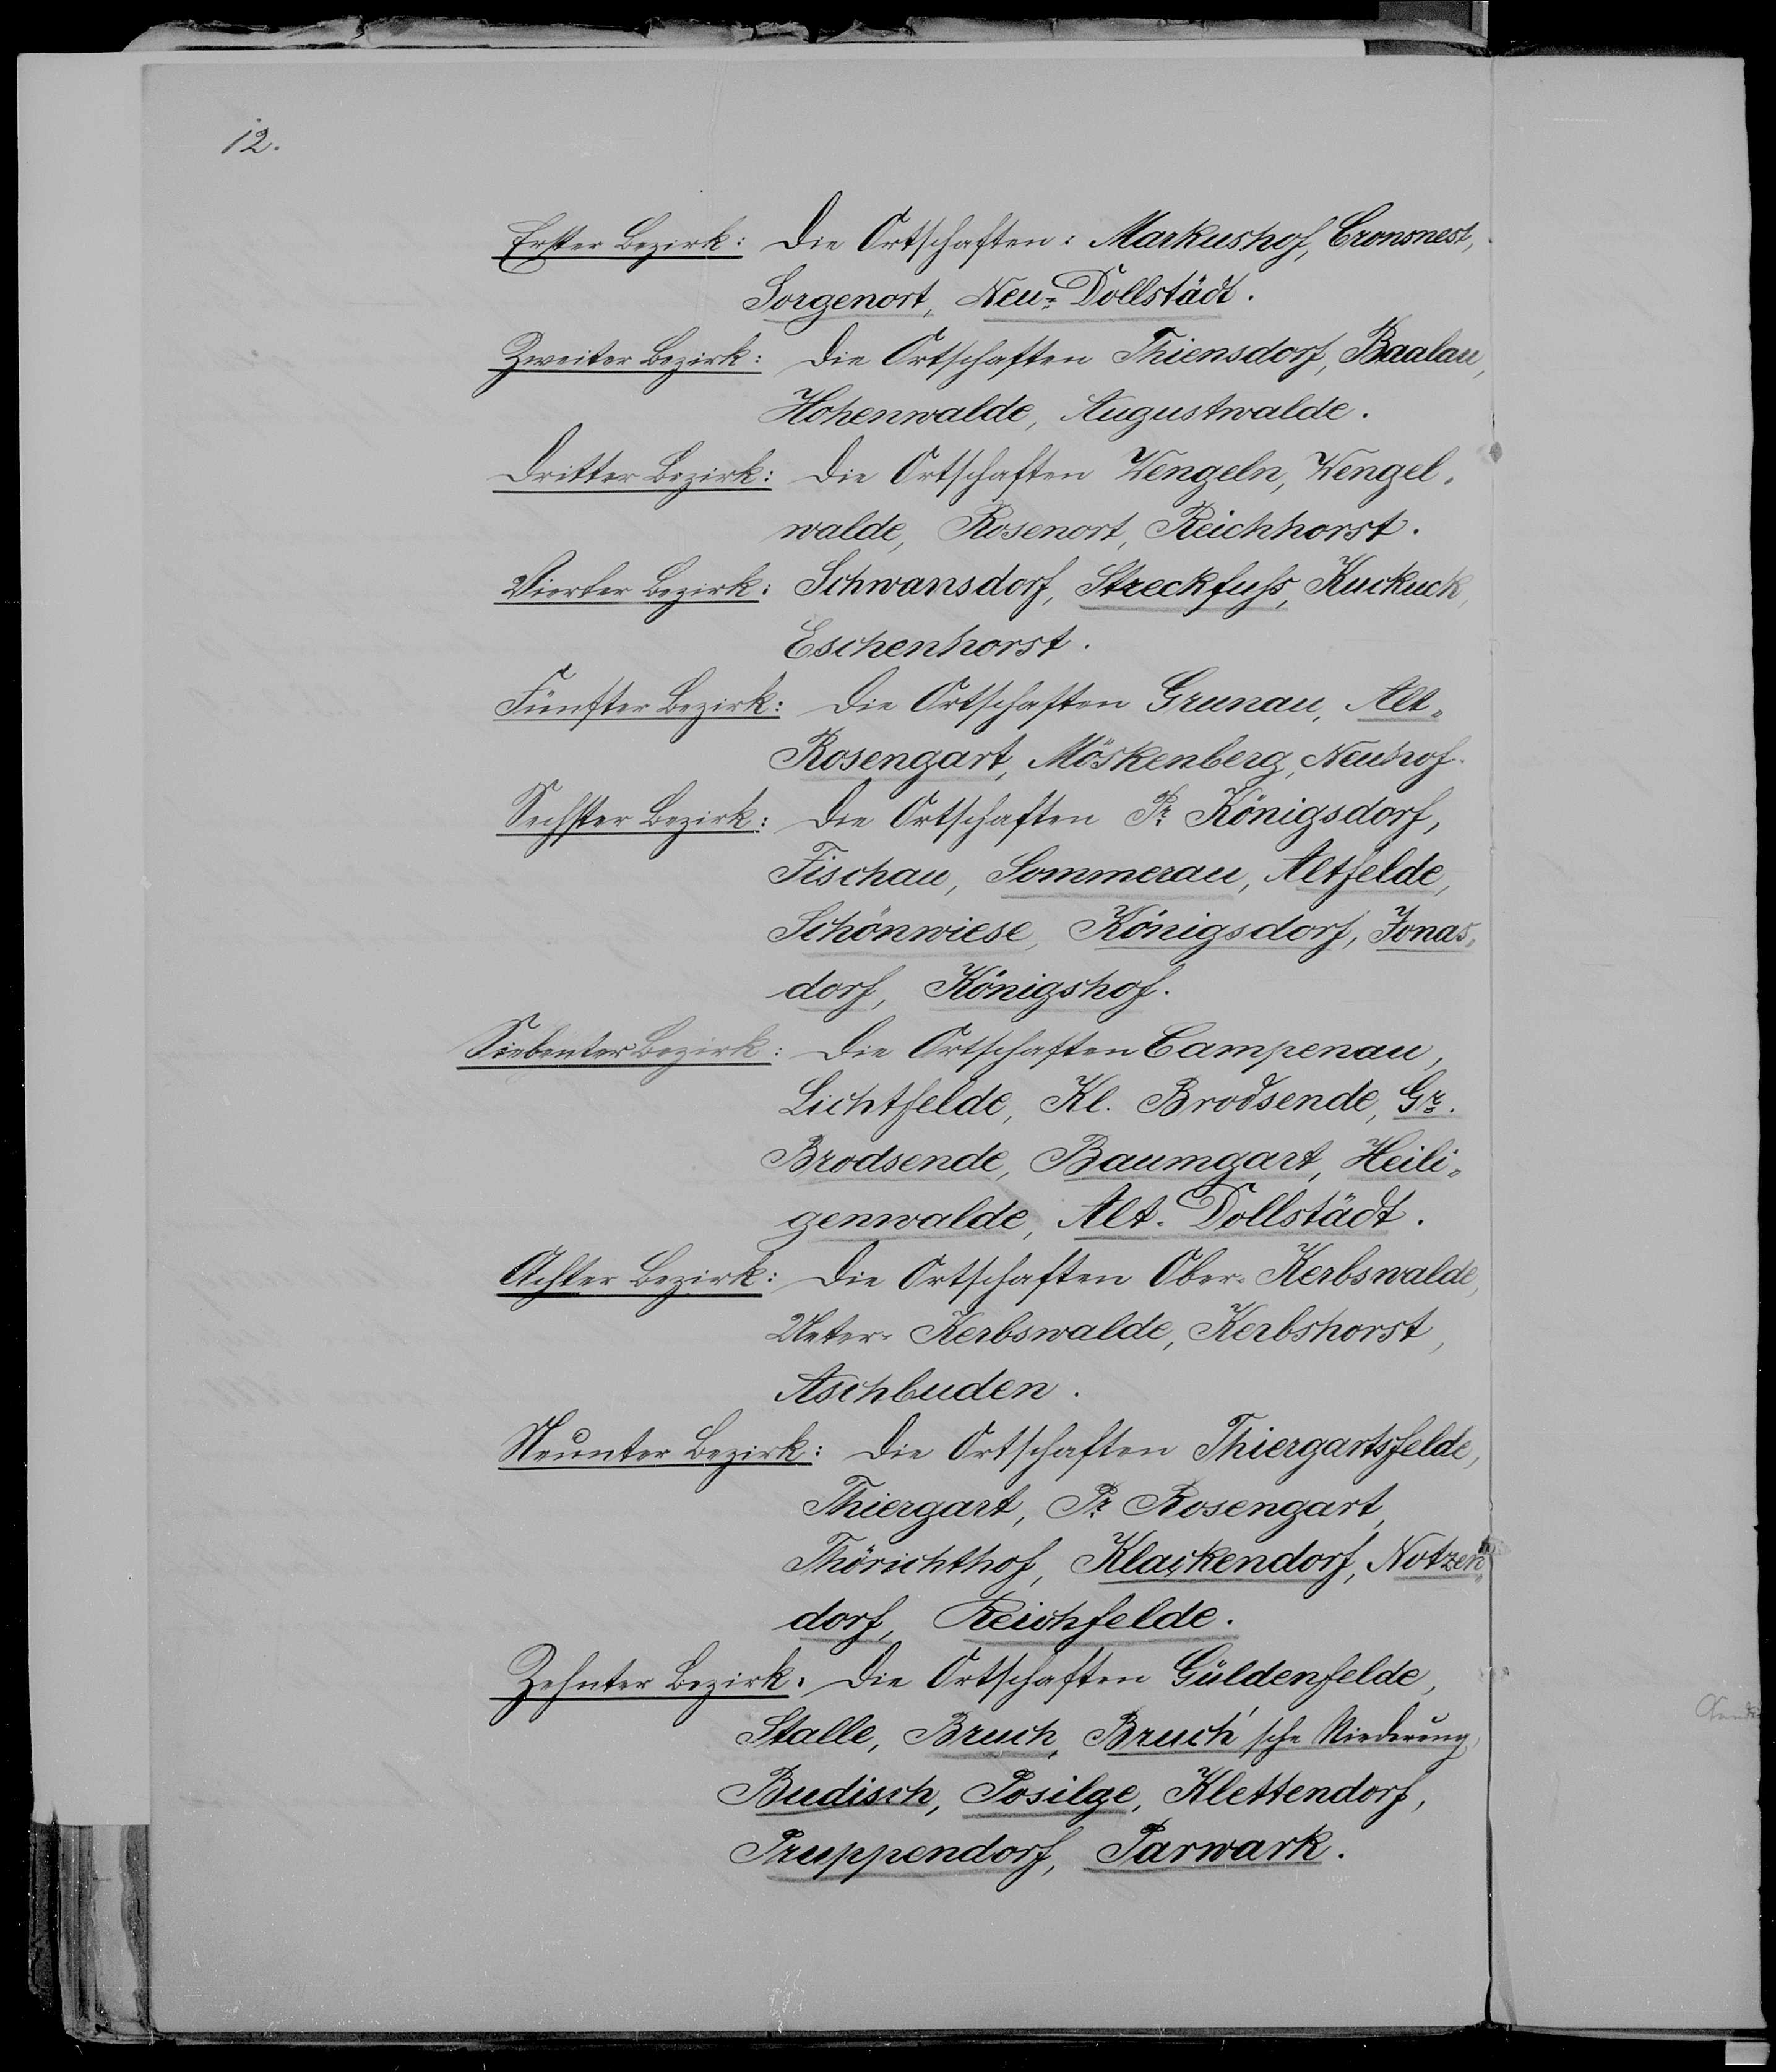 12.
Erster Bezirk: Die Ortschaften: Markushof, Cronsnest,
Sorgenort, Neu-Dollstädt.
Zweiter Bezirk: Die Ortschaften Thiensdorf, Baalau,
Hohenwalde, Augustwalde.
Dritter Bezirk: Die Ortschaften Wengeln, Wengel-
walde, Rosenort, Reichhorst.
Vierter Bezirk: Schwansdorf, Streckfuß, Kuckuck,
Eschenhorst.
Fünfter Bezirk: Die Ortschaften Grunau, Alt-
Rosengart, Möskenberg, Neuhof.
Sechster Bezirk: Die Ortschaften Pr. Königsdorf,
Fischau, Sommerau, Altfelde,
Schönwiese, Königsdorf, Jonas-
dorf, Königshof.
Siebenter Bezirk: Die Ortschaften Campenau,
Lichtfelde, Kl. Brodsende, Gr.
Brodsende, Baumgart, Heili-
genwalde, Alt-Dollstädt.
Achter Bezirk: Die Ortschaften Ober-Kerbswalde,
Unter-Kerbswalde, Kerbshorst,
Aschbuden.
Neunter Bezirk: Die Ortschaften Thiergartsfelde,
Thiergart, Pr. Rosengart,
Thörichthof, Klackendorf, Notzen-
dorf, Reichfelde.
Zehnter Bezirk: Die Ortschaften Güldenfelde,
Stalle, Bruch, Bruch'sche Niederung,
Budisch, Posilge, Klettendorf,
Pruppendorf, Parwark.